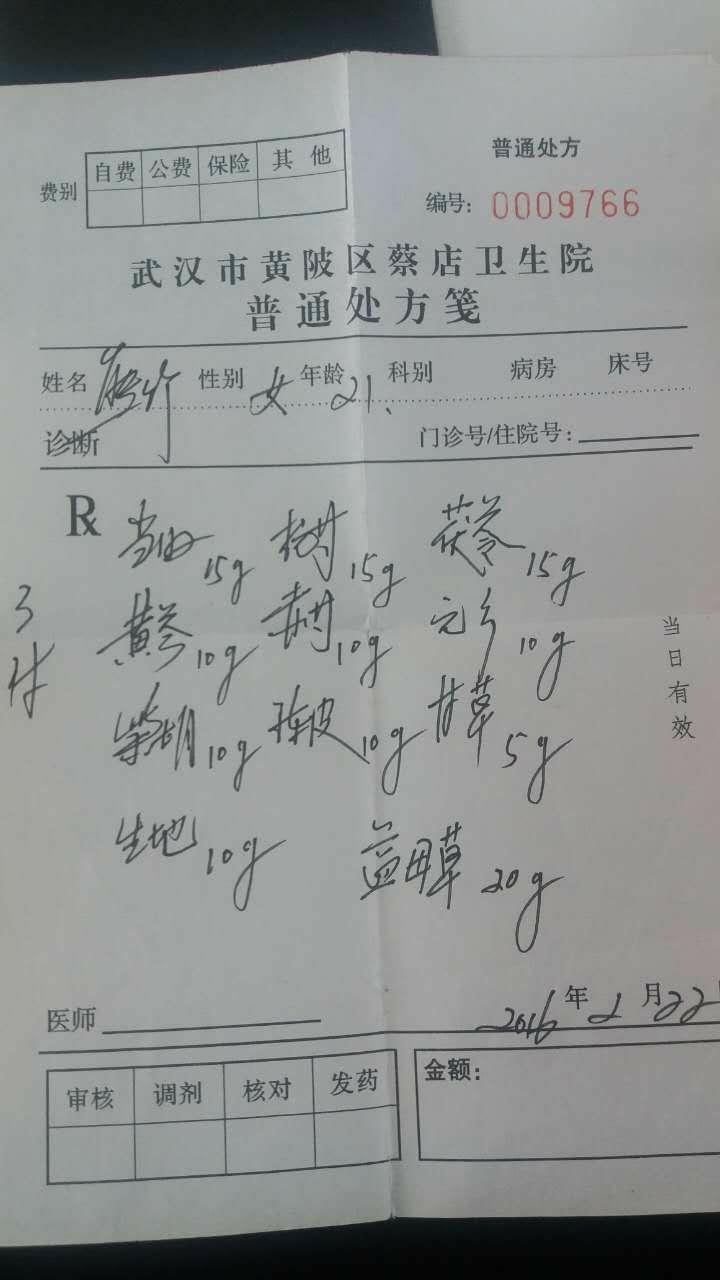 普通处方
费别 自费 公费 保险 其他
编号: 0009766
武汉市黄陂区蔡店卫生院
普通处方笺
姓名 性别 女 年龄 21. 科别 病房 床号
诊断 门诊号/住院号:
R
当归 15g 15g 茯苓 15g
3付
黄芩 10g 赤芍 10g 10g
柴胡 10g 陈皮 10g 甘草 5g
生地 10g 益母草 20g
当日有效
医师 2016年2月22
审核 调剂 核对 发药
金额: